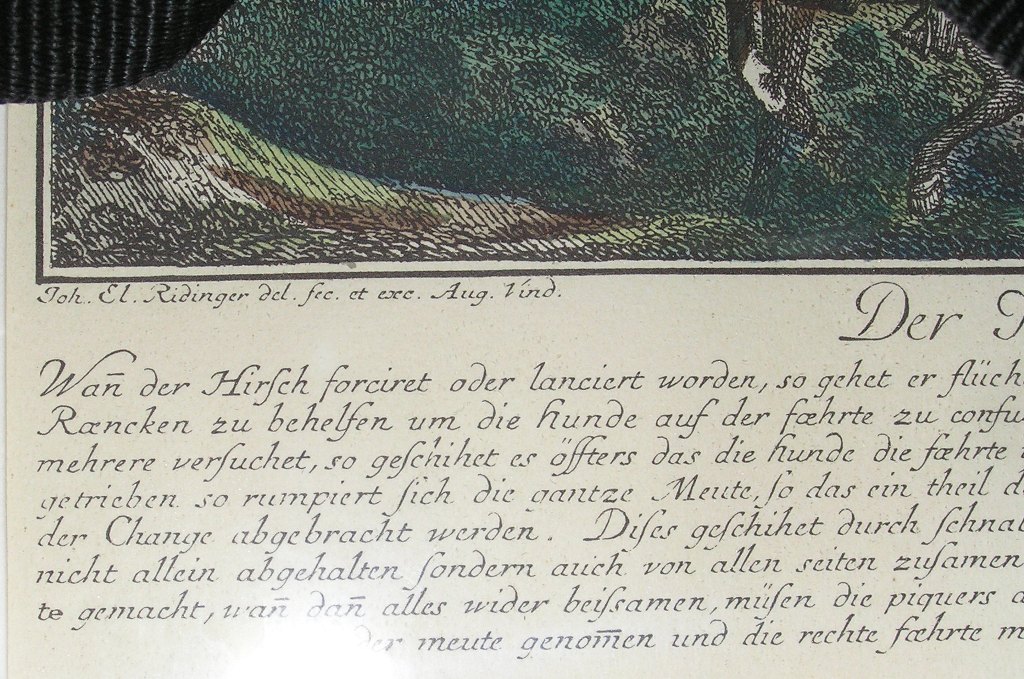 Joh. El. Ridinger del. fec. et exc. Aug. Vind.
Der
Wan̄ der Hirſch forciret oder lanciert worden, so gehet er flüch
Ræncken zu behelfen um die hunde auf der fæhrte zu confu
mehrere verſuchet, so geſchihet es öffters das die hunde die fæhrte
getrieben so rumpiert ſich die gantze Meute, ſo das ein theil d
der Change abgebracht werden. Diſes geſchihet durch ſchnal
nicht allein abgehalten ſondern auch von allen seiten zuſamen
te gemacht, wan̄ dan̄ alles wider beiſsamen, müſen die piquers a
der meute genom̄en und die rechte fæhrte m